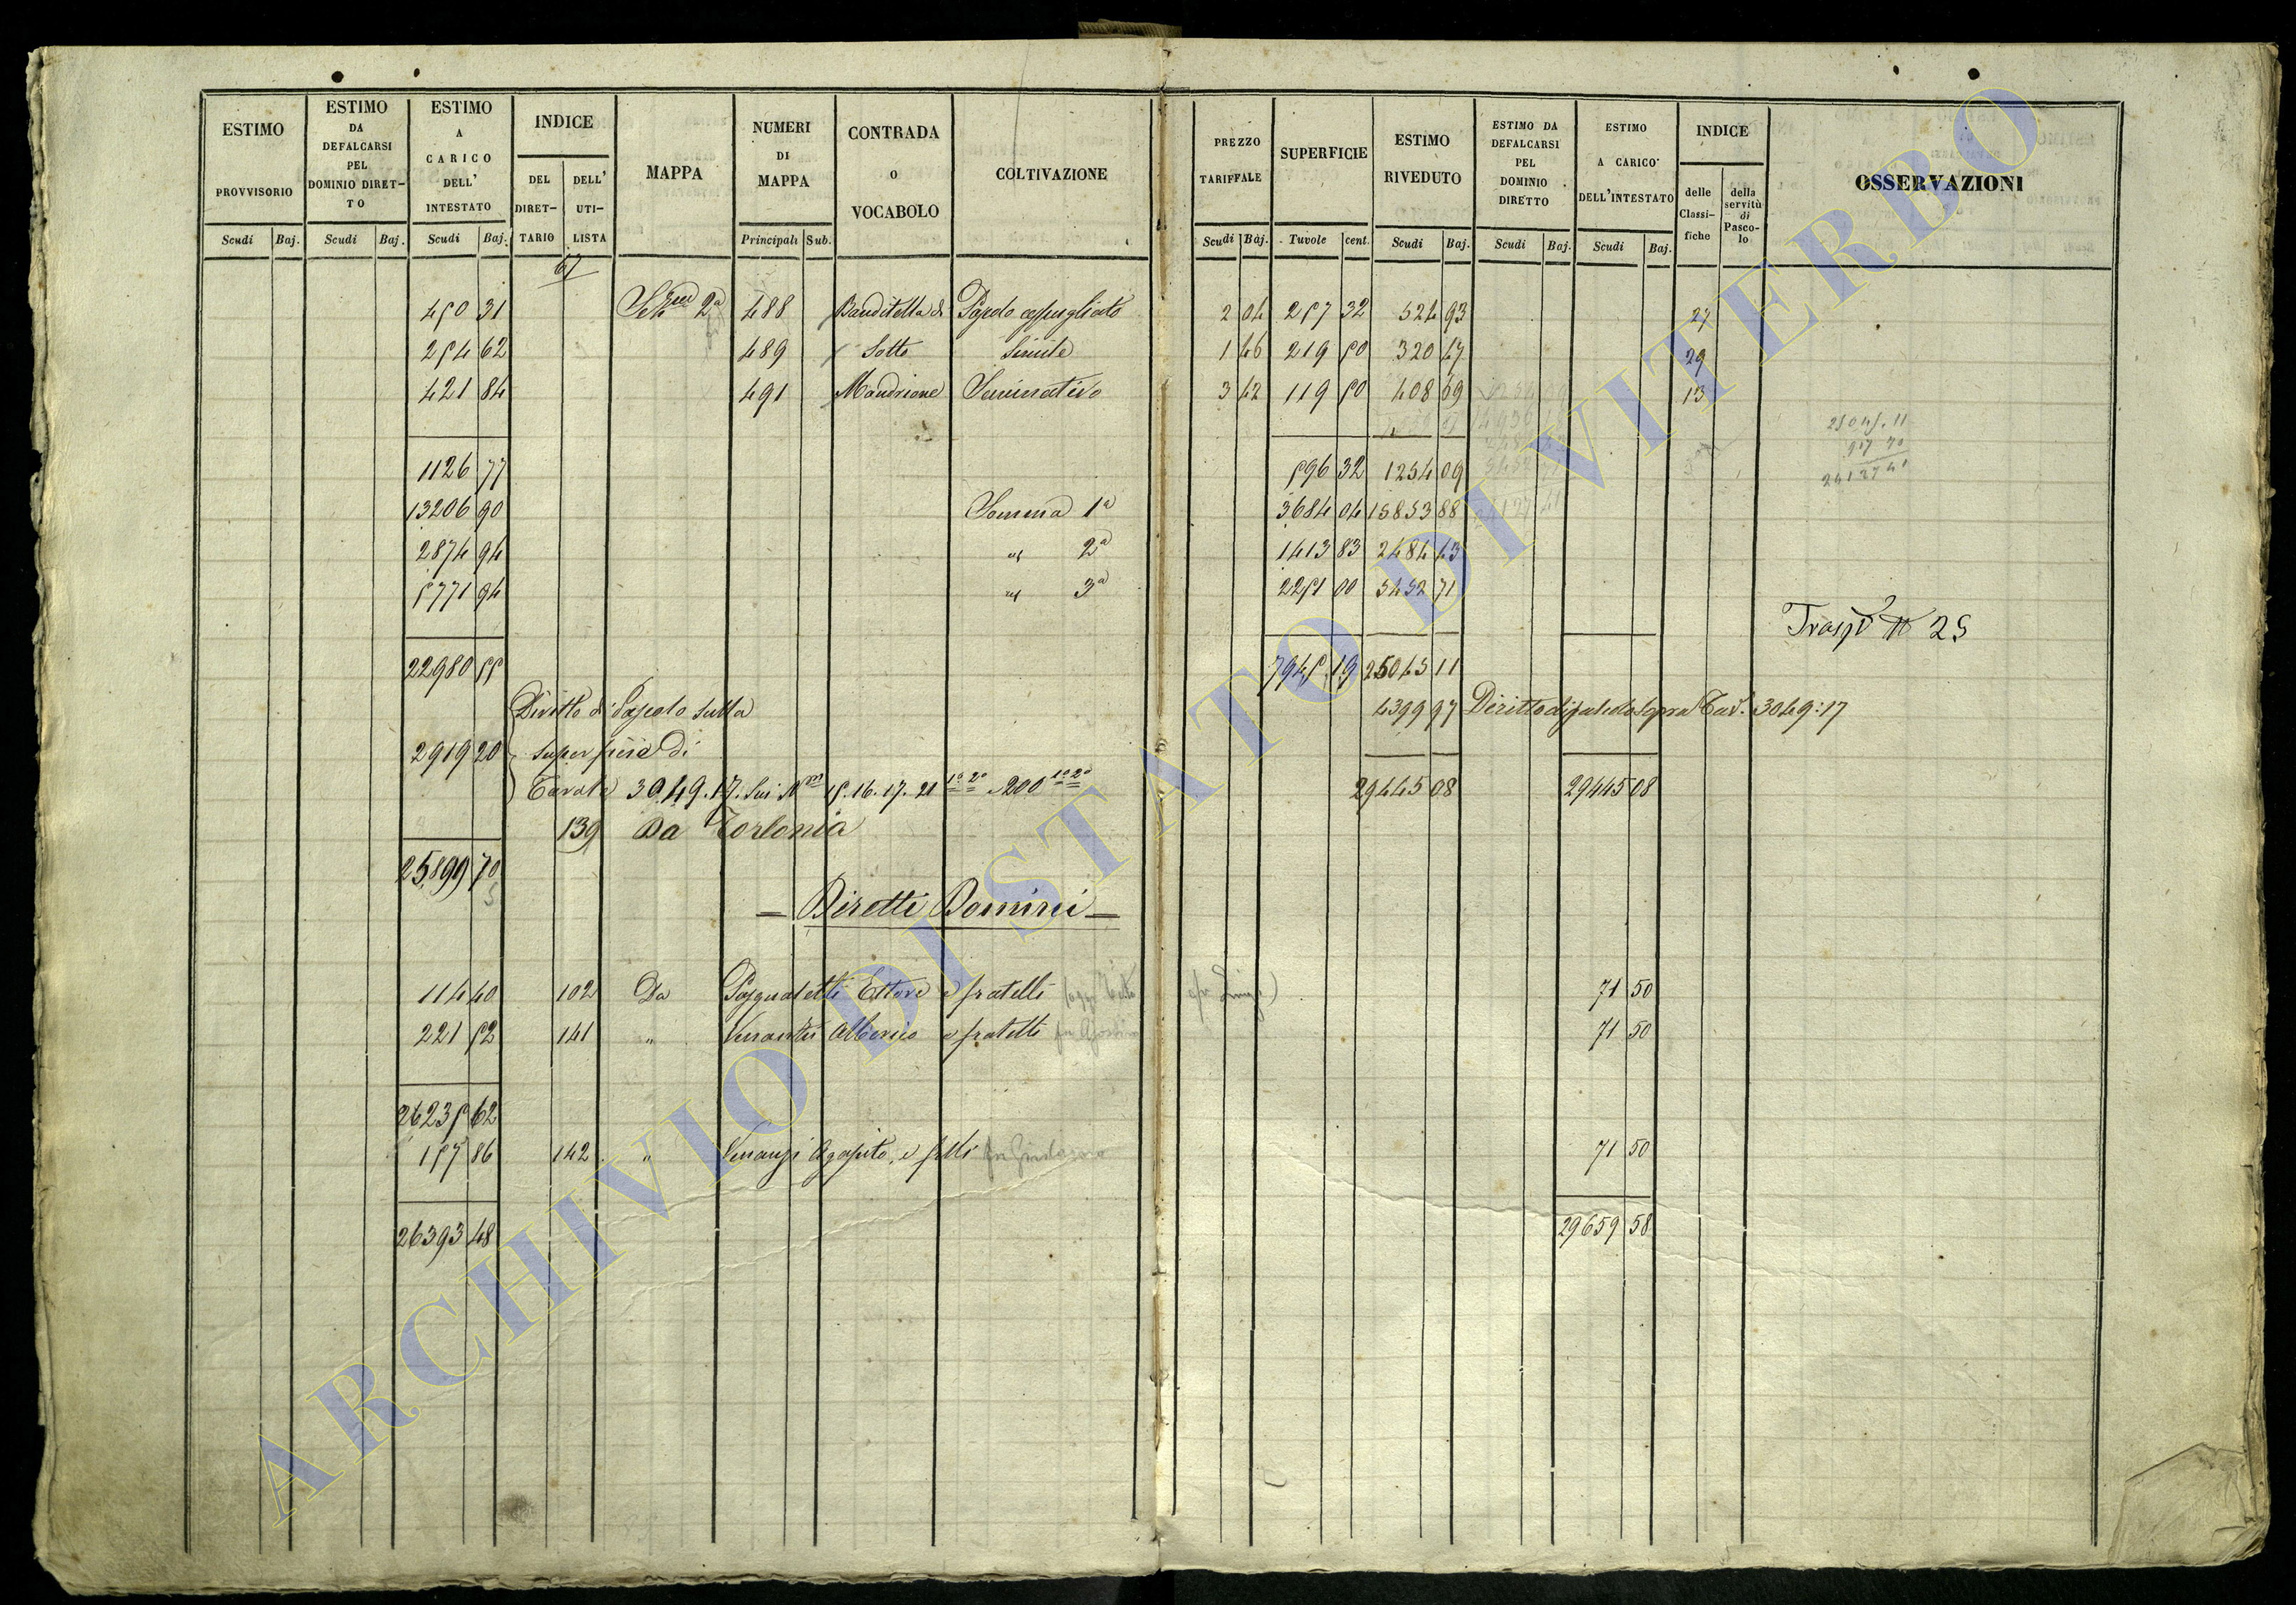 ESTIMO PROVVISORIO | ESTIMO DA DEFALCARSI PEL DOMINIO DIRET-TO | ESTIMO A CARICO DELL' INTESTATO | INDICE DEL DIRET-TARIO | DELL' UTI-LISTA | MAPPA | NUMERI DI MAPPA | CONTRADA O VOCABOLO | COLTIVAZIONE | PREZZO TARIFFALE | SUPERFICIE | ESTIMO RIVEDUTO | ESTIMO DA DEFALCARSI PEL DOMINIO DIRETTO | ESTIMO A CARICO DELL'INTESTATO | INDICE delle Classi-fiche | della servitù di Pasco-lo | OSSERVAZIONI
Scudi Baj. Scudi Baj. Scudi Baj. Principali Sub. Scudi Baj. Tavole cent. Scudi Baj. Scudi Baj. Scudi Baj.
67
450 31 2a 488 Banditella di Pascolo cespugliato 2 04 257 32 524 93 27
254 62 489 Sotto Simile 1 46 219 50 320 47 29
421 84 491 Mandrione Seminativo 3 42 119 50 408 69 13
25045.11
917 70
1126 77 596 32 1254 09
13206 90 Somma 1a 3684 04 15853 88
2874 94 " 2a 1413 83 2484 43
5771 94 " 3a 2251 00 5452 71
25
22980 55 7945 19 25045 11
Diritto di Pascolo sulla 4399 97 Diritto di pascolo sopra Tav. 3049:17
2919 20 superficie di
Tavole 30.49.17. sui N 15.16.17.21 1o 2o 200 1o 2o 29445 08 29445 08
139 Da Torlonia
25899 70
— Diretti Domini —
114 40 102 Da Pasqualetti Ettore e fratelli 71 50
221 52 141 " Alberico e fratelli 71 50
26235 62
157 86 142 " Venanzi Agapito, e flli 71 50
26393 48 29659 58
ARCHIVIO DI STATO DI VITERBO